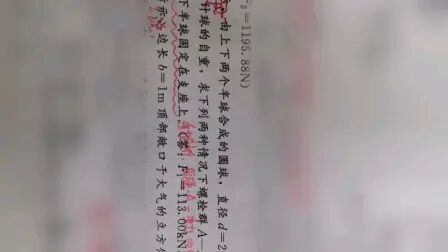 ₂=1195.88N)
由上下两个半球合成的圆球，直径d=2
计球的自重，求下列两种情况下螺栓群A—
下半球固定在支座上。(答：F₁=113.00kN
示 边长b=1m顶部敞口于大气的立方体